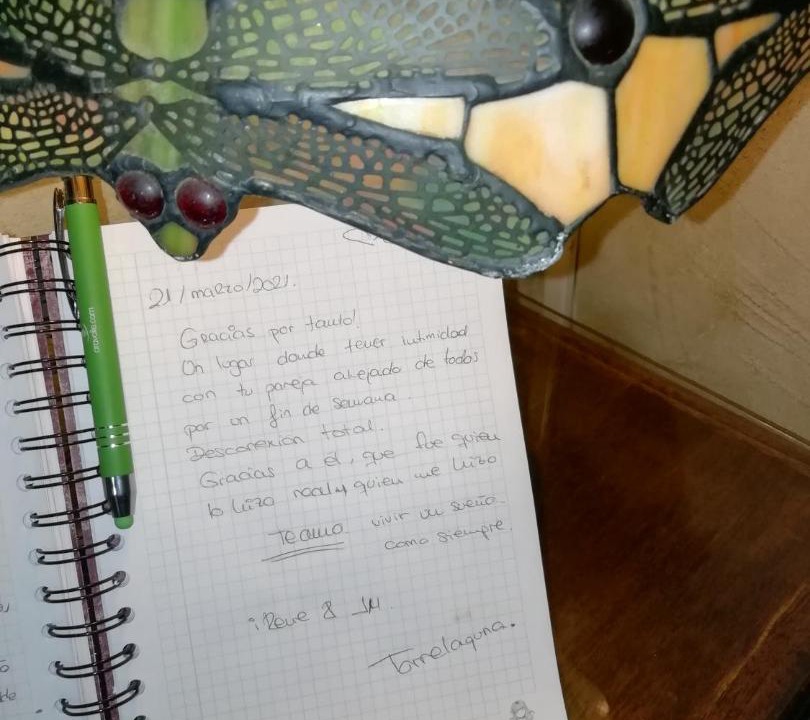 21/marzo/2021.
Gracias por tanto!
Un lugar donde tener intimidad
con tu pareja alejado de todos
por un fin de semana.
Desconexion total.
Gracias a el, que fue quien
lo hizo real y quien me hizo
vivir un sueño
Te amo
como siempre.
Irene & JM.
Torrelaguna.